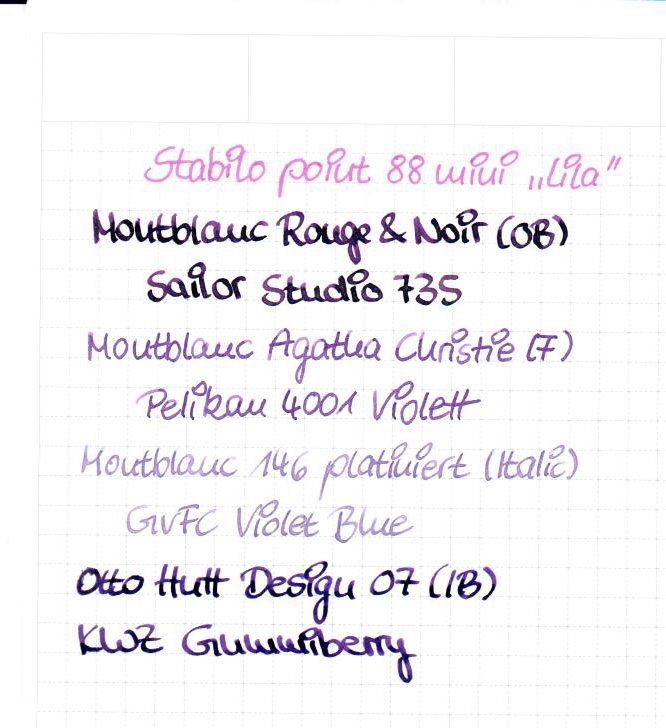 Stabilo point 88 mini „Lila"
Montblanc Rouge & Noir (OB)
Sailor Studio 735
Montblanc Agatha Christie (F)
Pelikan 4001 Violett
Montblanc 146 platiniert (Italic)
GvFC Violet Blue
Otto Hutt Design 07 (IB)
KWZ Gummiberry